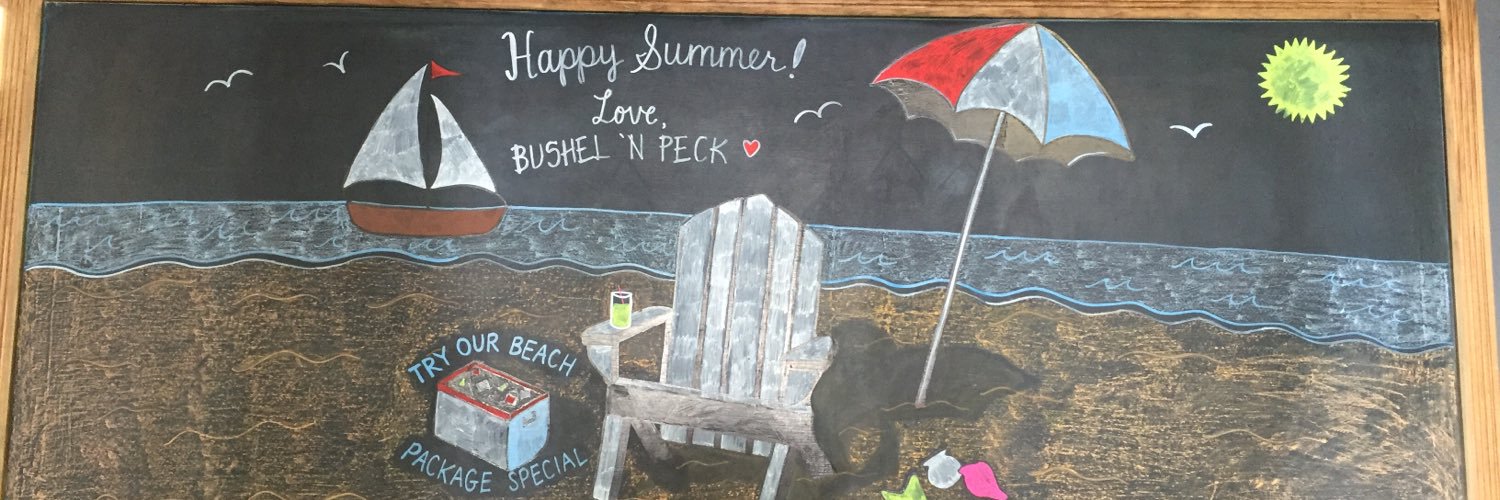 Happy Summer!
Love,
BUSHEL 'N PECK
TRY OUR BEACH
PACKAGE SPECIAL